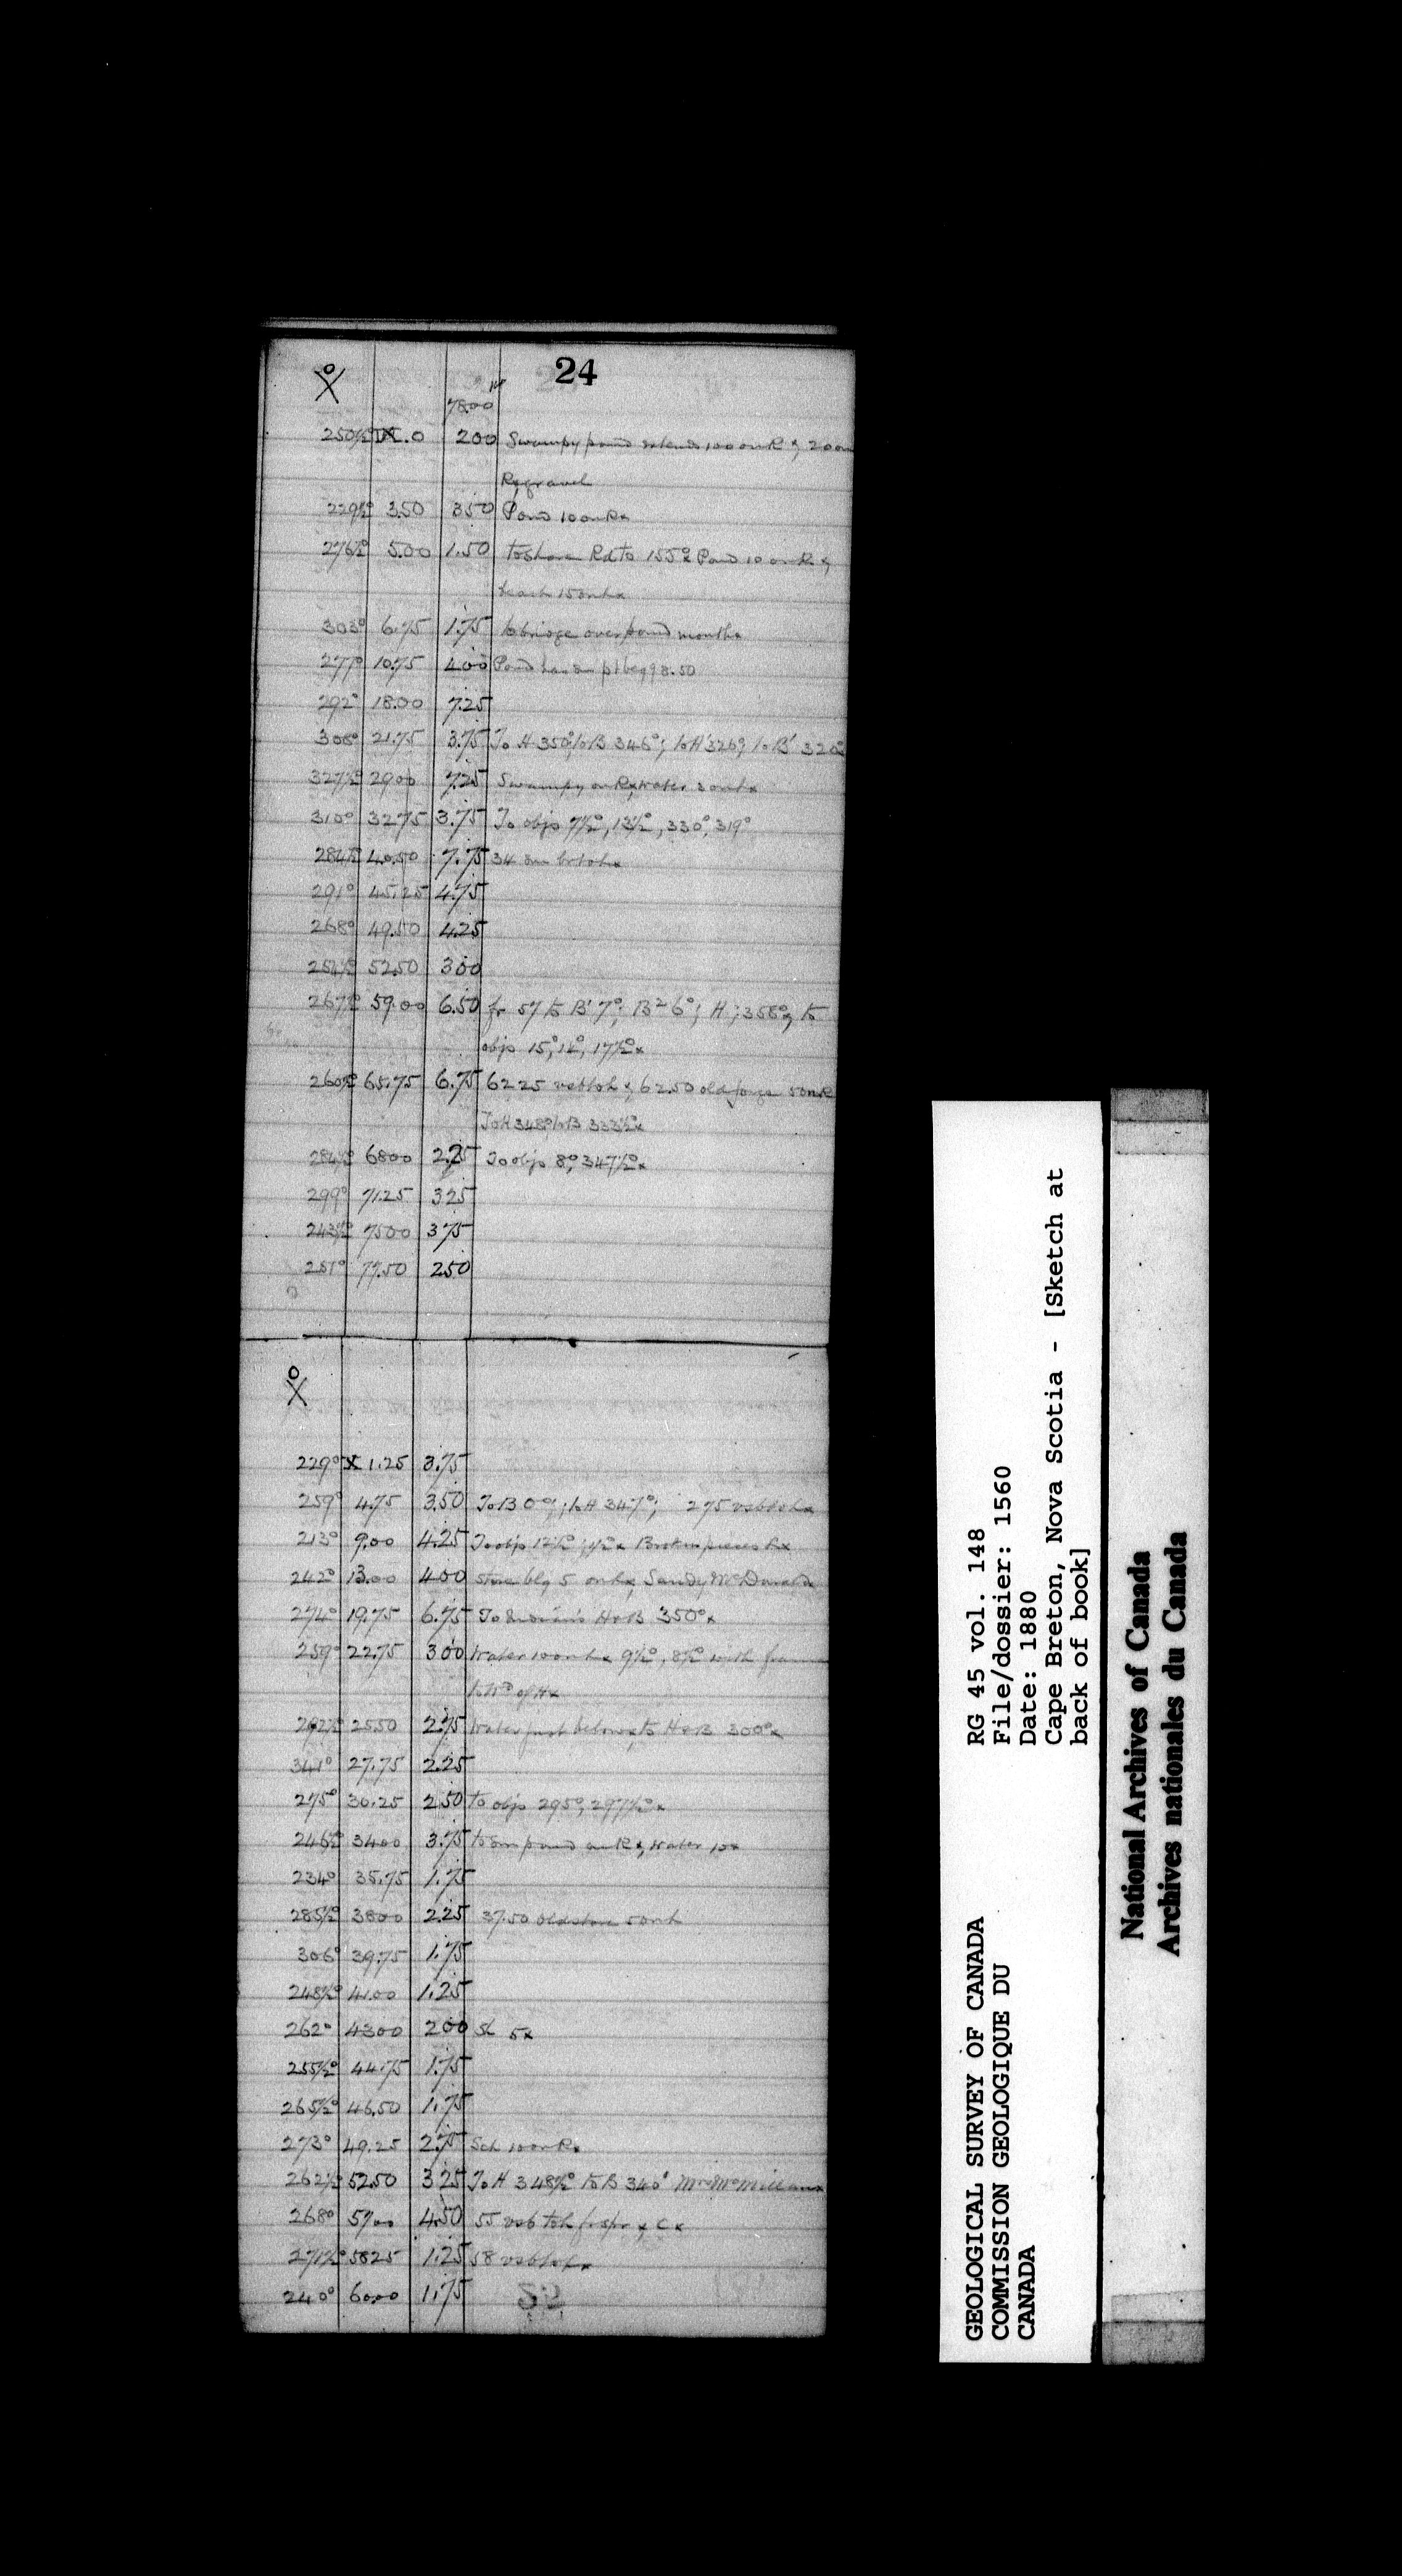 24
78.00
250½° IX.0 200 Swampy pond extends 100 on R & 20 on
R, gravel
229½° 3.50 350 Pond 10 on R x
276½° 5.00 1.50 to shore Rd to 155° x Pond 10 on R &
303° 6.75 1.75 to bridge over pond mouth x
277° 10.75 400 Pond has sm pt beg 98.50
292° 18.00 7.25
306° 21.75 3.75 To H 350°, to B 346°; to H' 326°; to B' 320°
327½° 29.00 7.25 Swampy on R x, water 3 on L x
310° 32.75 3.75 To objs 7½°, 13½°, 330°, 319°
284½° 40.50 7.75 34 sm br to L x
291° 45.25 4.75
268° 49.50 4.25
254½° 52.50 300
267½° 59.00 6.50 fr 57 to B' 7°; B² 6°; H; 358°, to
objs 15°, 14°, 17½° x
260½° 65.75 6.75 62.25 vsb to L & 62.50 old forge 50 on R
To H 348°, to B 333½° x
284½° 6800 2.25 To objs 8°, 347½° x
299° 71.25 325
243½° 7500 375
251° 77.50 250
229° X 1.25 3.75
259° 4.75 3.50 To B 0°; to H 347°; 275 vsb to L x
213° 9.00 4.25 To objs 12½°, ½° x Broken pieces R x
242° 13.00 400 store blg 5 on L x, Sandy McDonald
274° 19.75 6.75 To H & B 350° x
259° 22.75 300 Water 100 on L x 9½°, 8½° with
to Nº of H x
292½° 25.50 2.75 Water just below x, to H & B 300° x
341° 27.75 2.25
275° 30.25 250 to objs 295°, 297½° x
246½° 3400 3.75 to sm pond on R x, water 10 x
234° 35.75 1.75
285½° 3800 225 37.50 old store 50 on L
306° 39.75 1.75
248½° 41.00 1.25
262° 4300 200 SL 5 x
255½° 44.75 1.75
265½° 46.50 1.75
273° 49.25 2.75 Sch 10 on R x
262½° 52.50 325 To H 348½° to B 340° Mrs McMillans
268° 57.00 4.50 55 vsb to L fr spr x C x
271½° 58.25 1.25 58 vsb to L x
240° 60.00 1.75
GEOLOGICAL SURVEY OF CANADA
COMMISSION GEOLOGIQUE DU
CANADA
RG 45 vol. 148
File/dossier: 1560
Date: 1880
Cape Breton, Nova Scotia - [Sketch at
back of book]
National Archives of Canada
Archives nationales du Canada